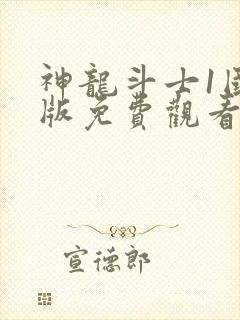 神龍斗士1国
版免費觀看
宣德郎